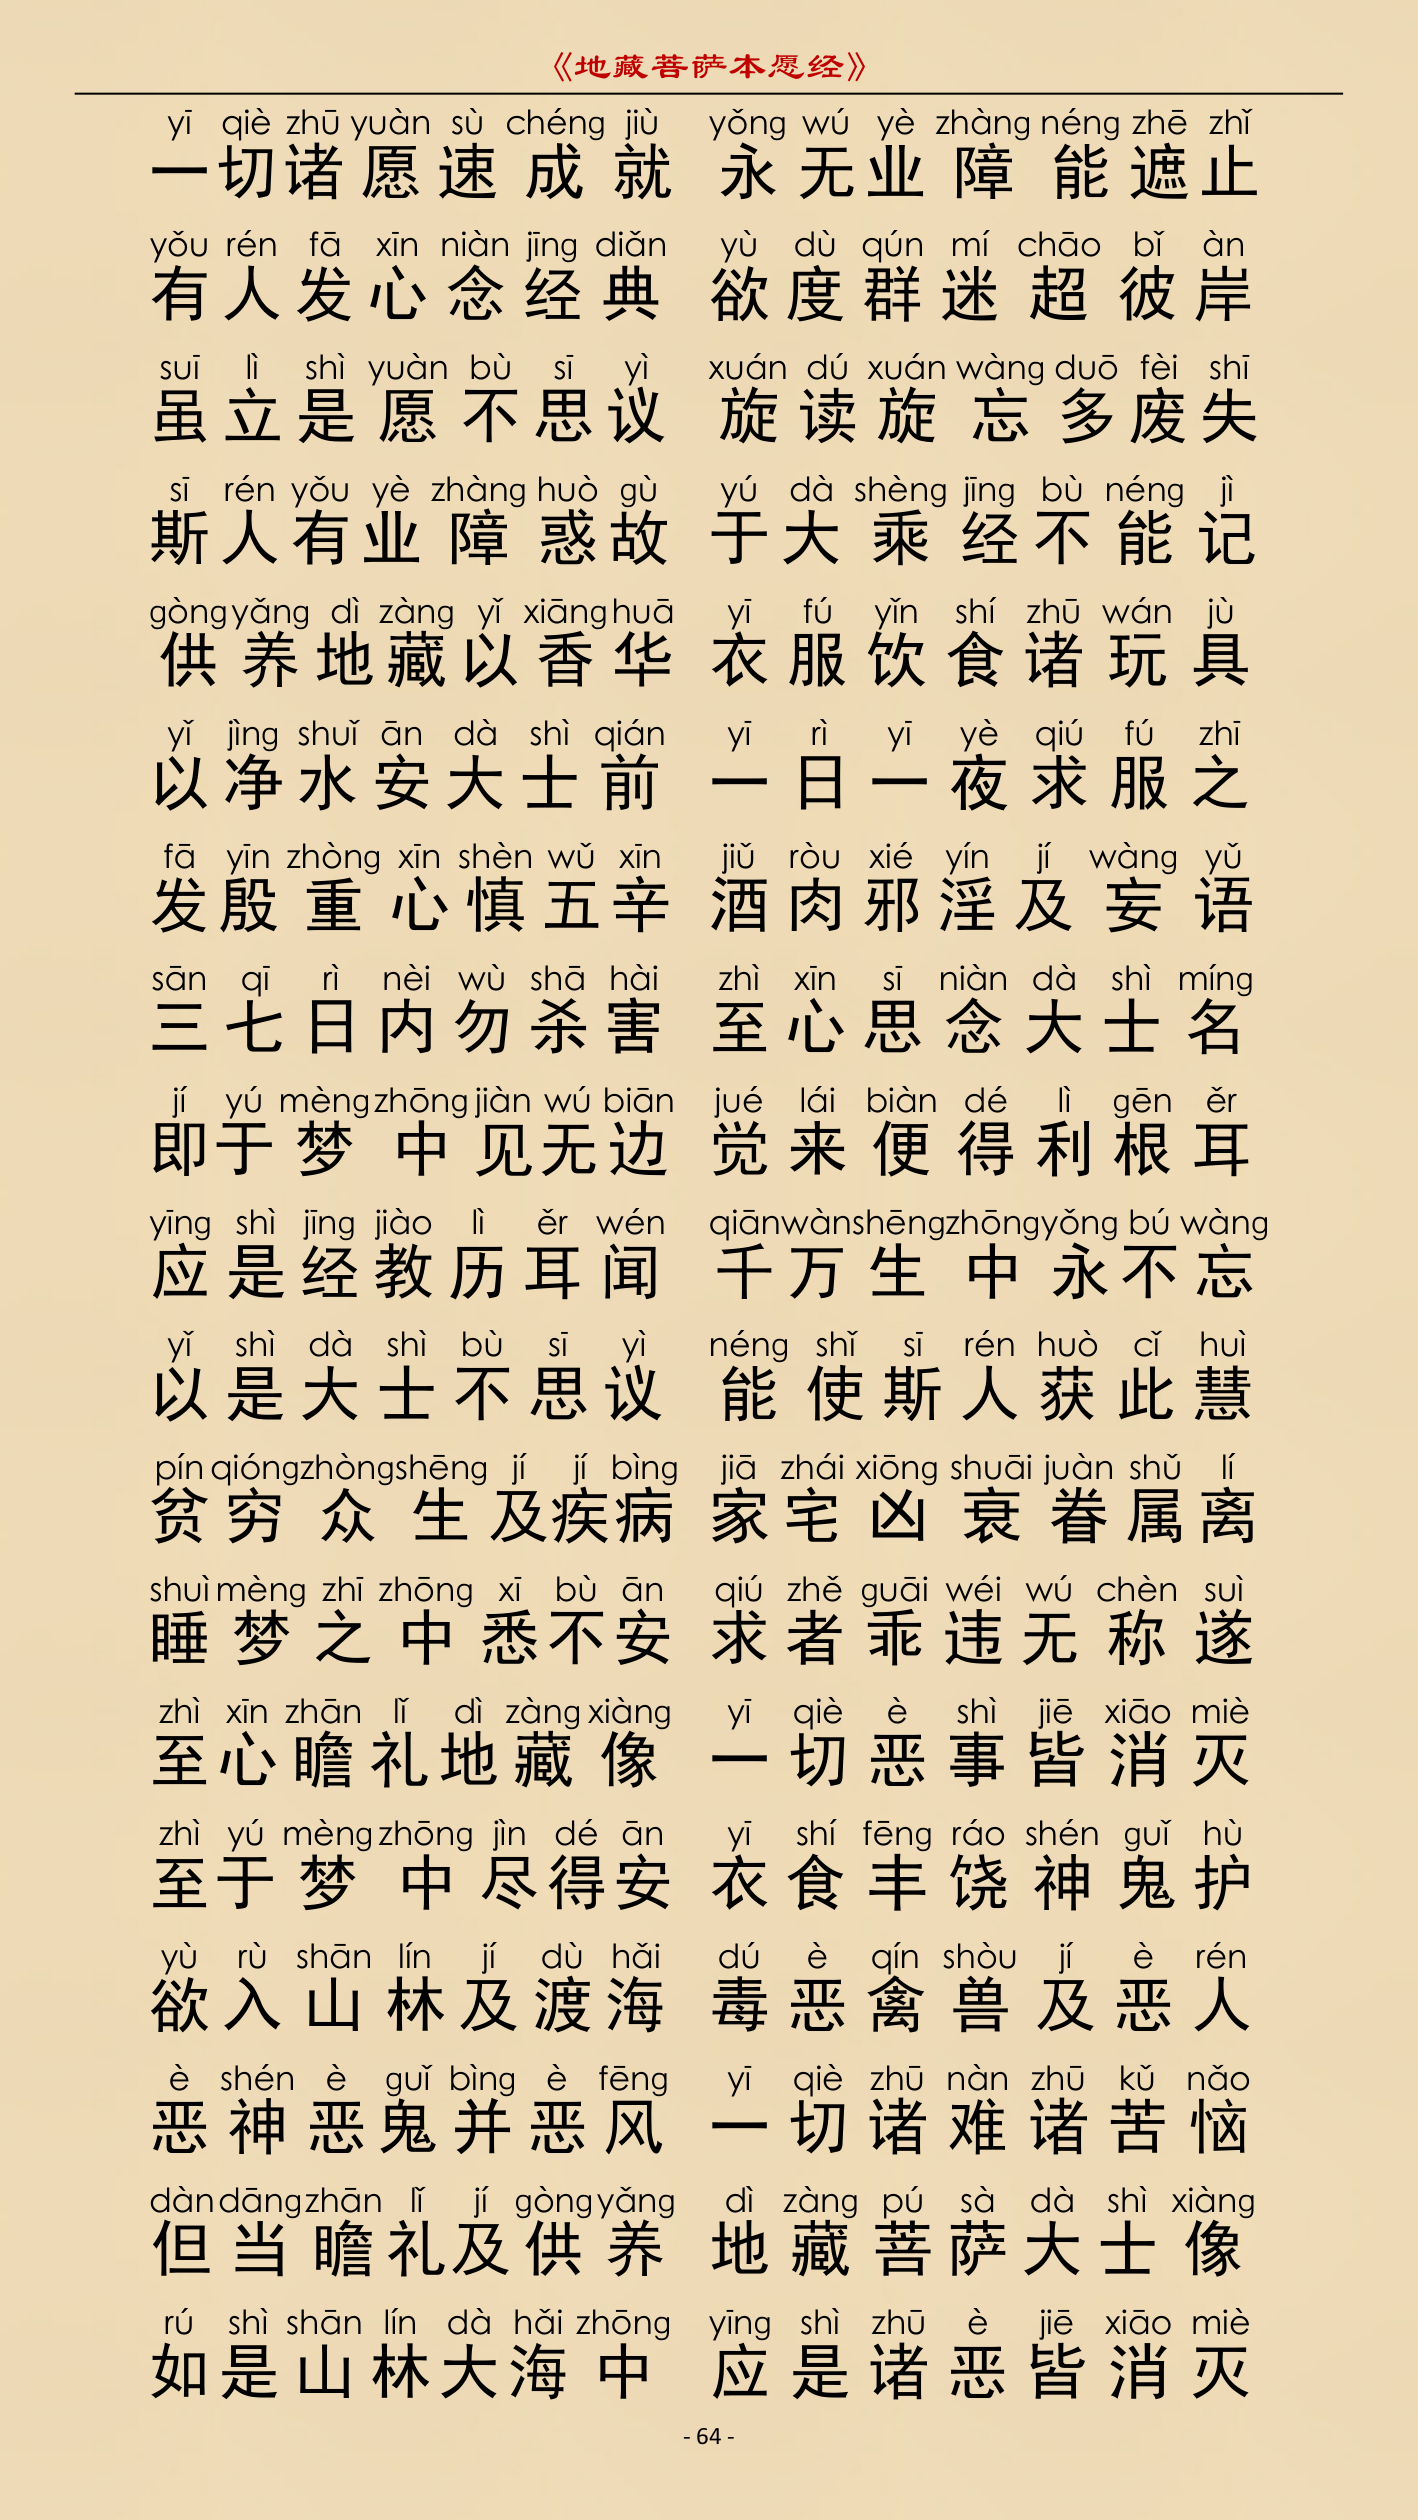 《地藏菩萨本愿经》
yī qiè zhū yuàn sù chéng jiù yǒng wú yè zhàng néng zhē zhǐ
一切诸愿速成就 永无业障能遮止
yǒu rén fā xīn niàn jīng diǎn yù dù qún mí chāo bǐ àn
有人发心念经典 欲度群迷超彼岸
suī lì shì yuàn bù sī yì xuán dú xuán wàng duō fèi shī
虽立是愿不思议 旋读旋忘多废失
sī rén yǒu yè zhàng huò gù yú dà shèng jīng bù néng jì
斯人有业障惑故 于大乘经不能记
gòng yǎng dì zàng yǐ xiāng huā yī fú yǐn shí zhū wán jù
供养地藏以香华 衣服饮食诸玩具
yǐ jìng shuǐ ān dà shì qián yī rì yī yè qiú fú zhī
以净水安大士前 一日一夜求服之
fā yīn zhòng xīn shèn wǔ xīn jiǔ ròu xié yín jí wàng yǔ
发殷重心慎五辛 酒肉邪淫及妄语
sān qī rì nèi wù shā hài zhì xīn sī niàn dà shì míng
三七日内勿杀害 至心思念大士名
jí yú mèng zhōng jiàn wú biān jué lái biàn dé lì gēn ěr
即于梦中见无边 觉来便得利根耳
yīng shì jīng jiào lì ěr wén qiān wàn shēng zhōng yǒng bú wàng
应是经教历耳闻 千万生中永不忘
yǐ shì dà shì bù sī yì néng shǐ sī rén huò cǐ huì
以是大士不思议 能使斯人获此慧
pín qióng zhòng shēng jí jí bìng jiā zhái xiōng shuāi juàn shǔ lí
贫穷众生及疾病 家宅凶衰眷属离
shuì mèng zhī zhōng xī bù ān qiú zhě guāi wéi wú chèn suì
睡梦之中悉不安 求者乖违无称遂
zhì xīn zhān lǐ dì zàng xiàng yī qiè è shì jiē xiāo miè
至心瞻礼地藏像 一切恶事皆消灭
zhì yú mèng zhōng jìn dé ān yī shí fēng ráo shén guǐ hù
至于梦中尽得安 衣食丰饶神鬼护
yù rù shān lín jí dù hǎi dú è qín shòu jí è rén
欲入山林及渡海 毒恶禽兽及恶人
è shén è guǐ bìng è fēng yī qiè zhū nàn zhū kǔ nǎo
恶神恶鬼并恶风 一切诸难诸苦恼
dàn dāng zhān lǐ jí gòng yǎng dì zàng pú sà dà shì xiàng
但当瞻礼及供养 地藏菩萨大士像
rú shì shān lín dà hǎi zhōng yīng shì zhū è jiē xiāo miè
如是山林大海中 应是诸恶皆消灭
- 64 -